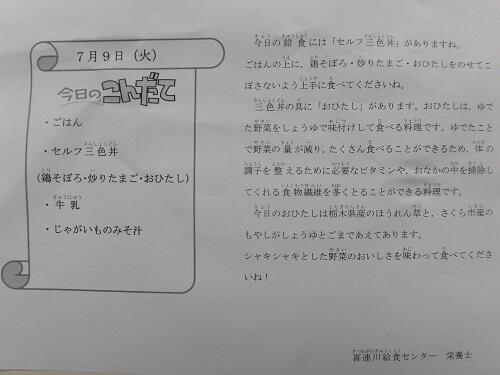 7月9日（火）
今日のこんだて
・ごはん
・セルフ三色丼
(鶏そぼろ・炒りたまご・おひたし)
・牛乳
・じゃがいものみそ汁
今日の給食には「セルフ三色丼」がありますね。
ごはんの上に、鶏そぼろ・炒りたまご・おひたしをのせてこ
ぼさないよう上手に食べてくださいね。
三色丼の具に「おひたし」があります。おひたしは、ゆで
た野菜をしょうゆで味付けして食べる料理です。ゆでたこと
で野菜の量が減り、たくさん食べることができるため、体の
調子を整えるために必要なビタミンや、おなかの中を掃除し
てくれる食物繊維を多くとることができる料理です。
今日のおひたしは栃木県産のほうれん草と、さくら市産の
もやしがしょうゆとごまであえてあります。
シャキシャキとした野菜のおいしさを味わって食べてくださ
いね！
喜連川給食センター　栄養士